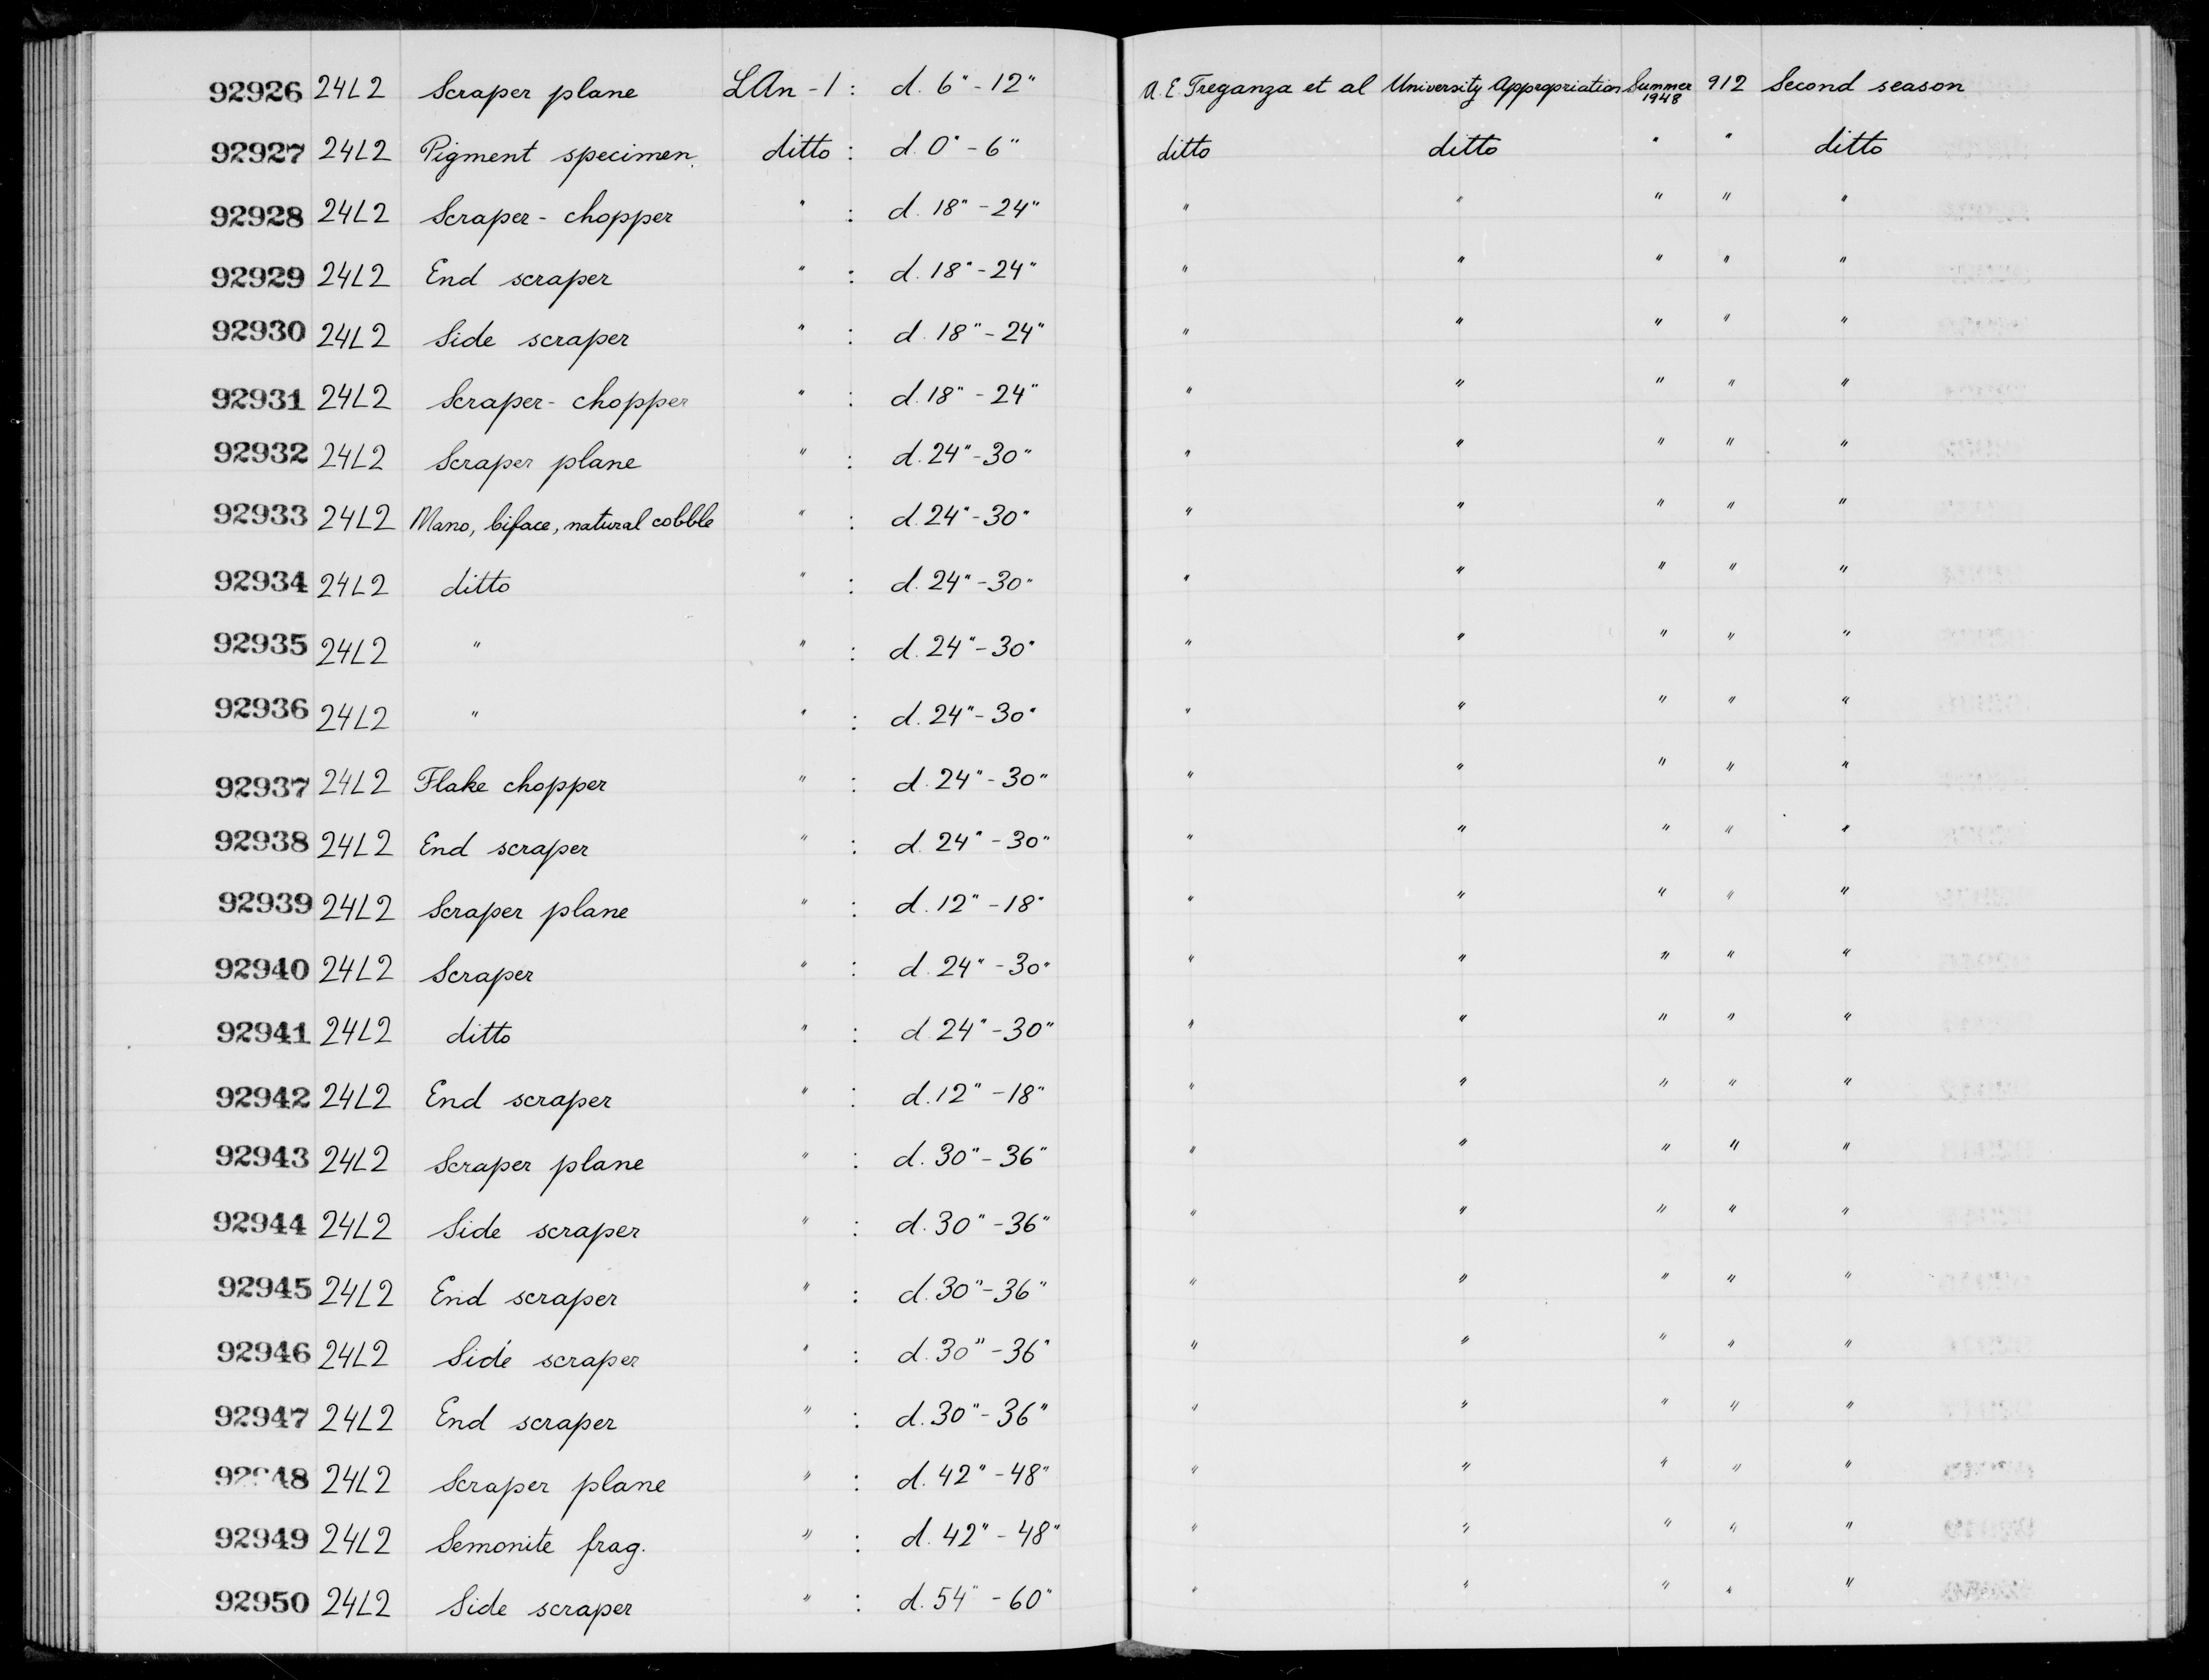 92926 24L2 Scraper plane LAn-1 : d. 6"-12" A. E. Treganza et al University Appropriation Summer 1948 912 Second season
92927 24L2 Pigment specimen. ditto : d. 0"-6" ditto ditto " " ditto
92928 24L2 Scraper-chopper " : d. 18"-24" " " " " "
92929 24L2 End scraper " : d. 18"-24" " " " " "
92930 24L2 Side scraper " : d. 18"-24" " " " " "
92931 24L2 Scraper-chopper " : d. 18"-24" " " " " "
92932 24L2 Scraper plane " : d. 24"-30" " " " " "
92933 24L2 Mano, biface, natural cobble " : d. 24"-30" " " " " "
92934 24L2 ditto " : d. 24"-30" " " " " "
92935 24L2 " " : d. 24"-30" " " " " "
92936 24L2 " " : d. 24"-30" " " " " "
92937 24L2 Flake chopper " : d. 24"-30" " " " " "
92938 24L2 End scraper " : d. 24"-30" " " " " "
92939 24L2 Scraper plane " : d. 12"-18" " " " " "
92940 24L2 Scraper " : d. 24"-30" " " " " "
92941 24L2 ditto " : d. 24"-30" " " " " "
92942 24L2 End scraper " : d. 12"-18" " " " " "
92943 24L2 Scraper plane " : d. 30"-36" " " " " "
92944 24L2 Side scraper " : d. 30"-36" " " " " "
92945 24L2 End scraper " : d. 30"-36" " " " " "
92946 24L2 Side scraper " : d. 30"-36" " " " " "
92947 24L2 End scraper " : d. 30"-36" " " " " "
92948 24L2 Scraper plane " : d. 42"-48" " " " " "
92949 24L2 Semonite frag. " : d. 42"-48" " " " " "
92950 24L2 Side scraper " : d. 54"-60" " " " " "